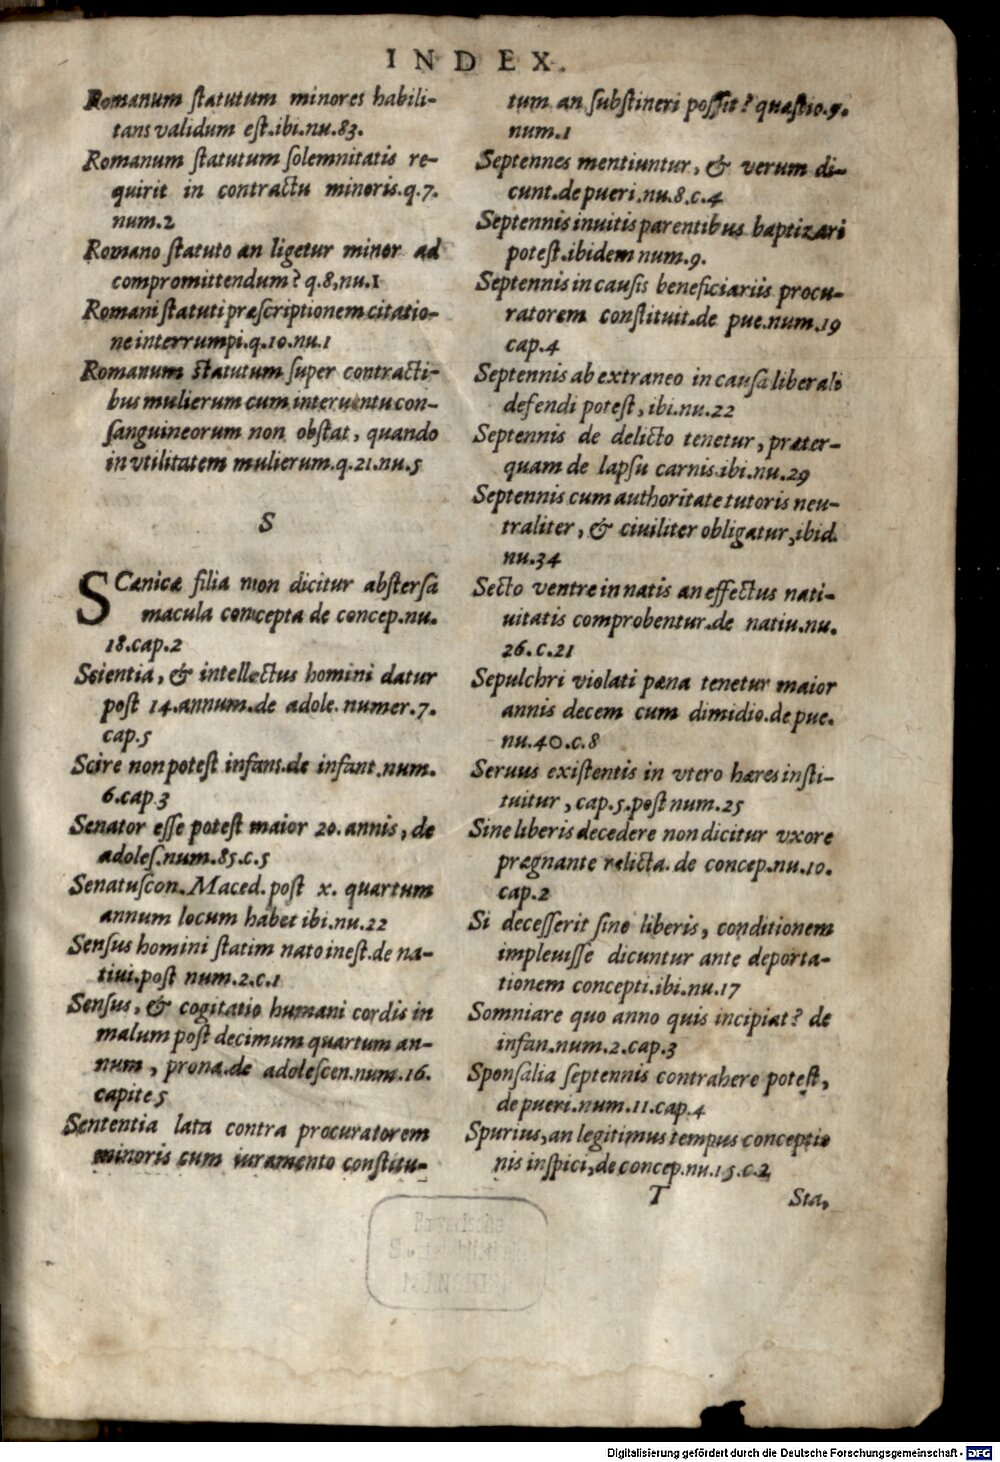 INDEX.
Romanum ſtatutum minores habili-
tans validum eſt.ibi.nu.83.
Romanum ſtatutum ſolemnitatis re-
quirit in contractu minoris.q.7.
num.2
Romano ſtatuto an ligetur minor ad
compromittendum? q.8,nu.1
Romani ſtatuti præſcriptionem citatio-
ne interrumpi.q.10.nu.1
Romanum ſtatutum ſuper contracti-
bus mulierum cum interuentu con-
ſanguineorum non obſtat, quando
in vtilitatem mulierum.q.21.nu.5
S
SCænicæ filia non dicitur abſterſa
macula concepta de concep.nu.
18.cap.2
Scientia, & intellectus homini datur
poſt 14.annum.de adole. numer.7.
cap.5
Scire non poteſt infans.de infant.num.
6.cap.3
Senator eſſe poteſt maior 20. annis, de
adoleſ.num.85.c.5
Senatuſcon. Maced. poſt x. quartum
annum locum habet ibi.nu.22
Senſus homini ſtatim nato ineſt.de na-
tiui.poſt num.2.c.1
Senſus, & cogitatio humani cordis in
malum poſt decimum quartum an-
num, prona.de adoleſcen.num.16.
capite 5
Sententia lata contra procuratorem
minoris cum iuramento conſtitu-
tum an ſubſtineri poſſit? quæſtio.9.
num.1
Septennes mentiuntur, & verum di-
cunt.de pueri.nu.8.c.4
Septennis inuitis parentibus baptizari
poteſt.ibidem num.9.
Septennis in cauſis beneficiariis procu-
ratorem conſtituit.de pue.num.19
cap.4
Septennis ab extraneo in cauſa liberali
defendi poteſt, ibi.nu.22
Septennis de delicto tenetur, præter-
quam de lapſu carnis.ibi.nu.29
Septennis cum authoritate tutoris neu-
traliter, & ciuiliter obligatur,ibid.
nu.34
Secto ventre in natis an effectus nati-
uitatis comprobentur.de natiu.nu.
26.c.21
Sepulchri violati pæna tenetur maior
annis decem cum dimidio.de pue.
nu.40.c.8
Seruus exiſtentis in vtero hæres inſti-
tuitur, cap.5.poſt num.25
Sine liberis decedere non dicitur vxore
prægnante relicta. de concep.nu.10.
cap.2
Si deceſſerit ſine liberis, conditionem
impleuiſſe dicuntur ante deporta-
tionem concepti.ibi.nu.17
Somniare quo anno quis incipiat? de
infan.num.2.cap.3
Sponſalia ſeptennis contrahere poteſt,
de pueri.num.11.cap.4
Spurius,an legitimus tempus conceptio
nis inſpici,de concep.nu.15.c.2
T Sta,
Digitalisierung gefördert durch die Deutsche Forschungsgemeinschaft - DFG